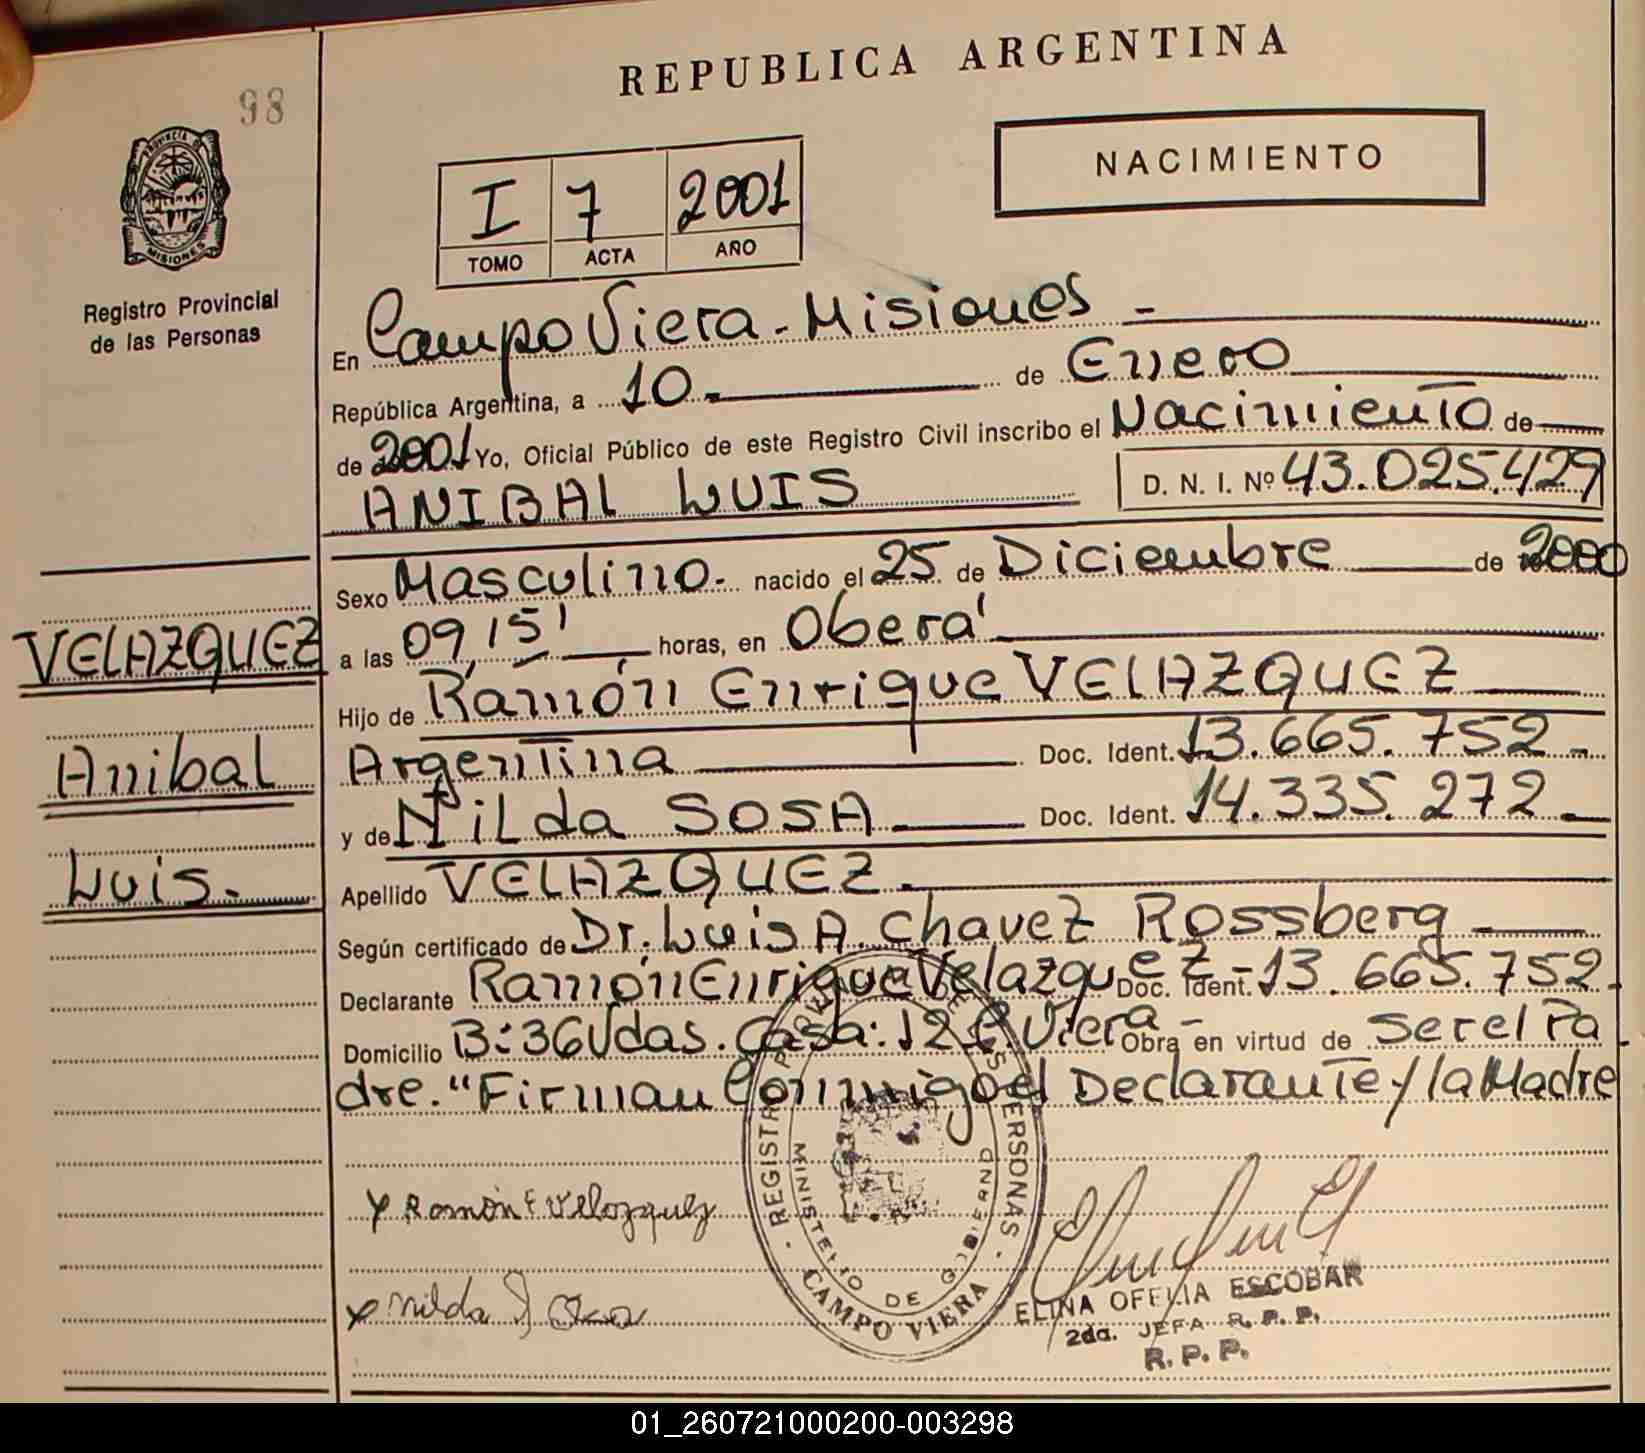 98
REPUBLICA ARGENTINA
PROVINCIA DE
MISIONES
Registro Provincial
de las Personas
I 7 2001
TOMO ACTA AÑO
NACIMIENTO
En Campo Viera - Misiones -
República Argentina, a 10.- de Enero
de 2001 Yo, Oficial Público de este Registro Civil inscribo el Nacimiento de
ANIBAL LUIS D. N. I. Nº 43.025.429
Sexo Masculino.- nacido el 25 de Diciembre de 2000
a las 09,15' horas, en Oberá
Hijo de Ramón Enrique VELAZQUEZ
Argentina Doc. Ident. 13.665.752 -
y de Nilda SOSA Doc. Ident. 14.335.272 -
Apellido VELAZQUEZ.
Según certificado de Dr. Luis A. Chavez Rossberg
Declarante Ramón Enrique Velazquez - Doc. Ident. 13.665.752.
Domicilio B: 36 Vdas. Casa: 12 C. Viera - Obra en virtud de Ser el Pa
dre. "Firman Conmigo el Declarante y la Madre
VELAZQUEZ
Anibal
Luis.
Ramón E Velazquez
Nilda
REGISTRO PROV. DE LAS PERSONAS
MINISTERIO DE GOBIERNO
CAMPO VIERA
ELINA OFELIA ESCOBAR
2da. JEFA R. P. P.
R. P. P.
01_260721000200-003298